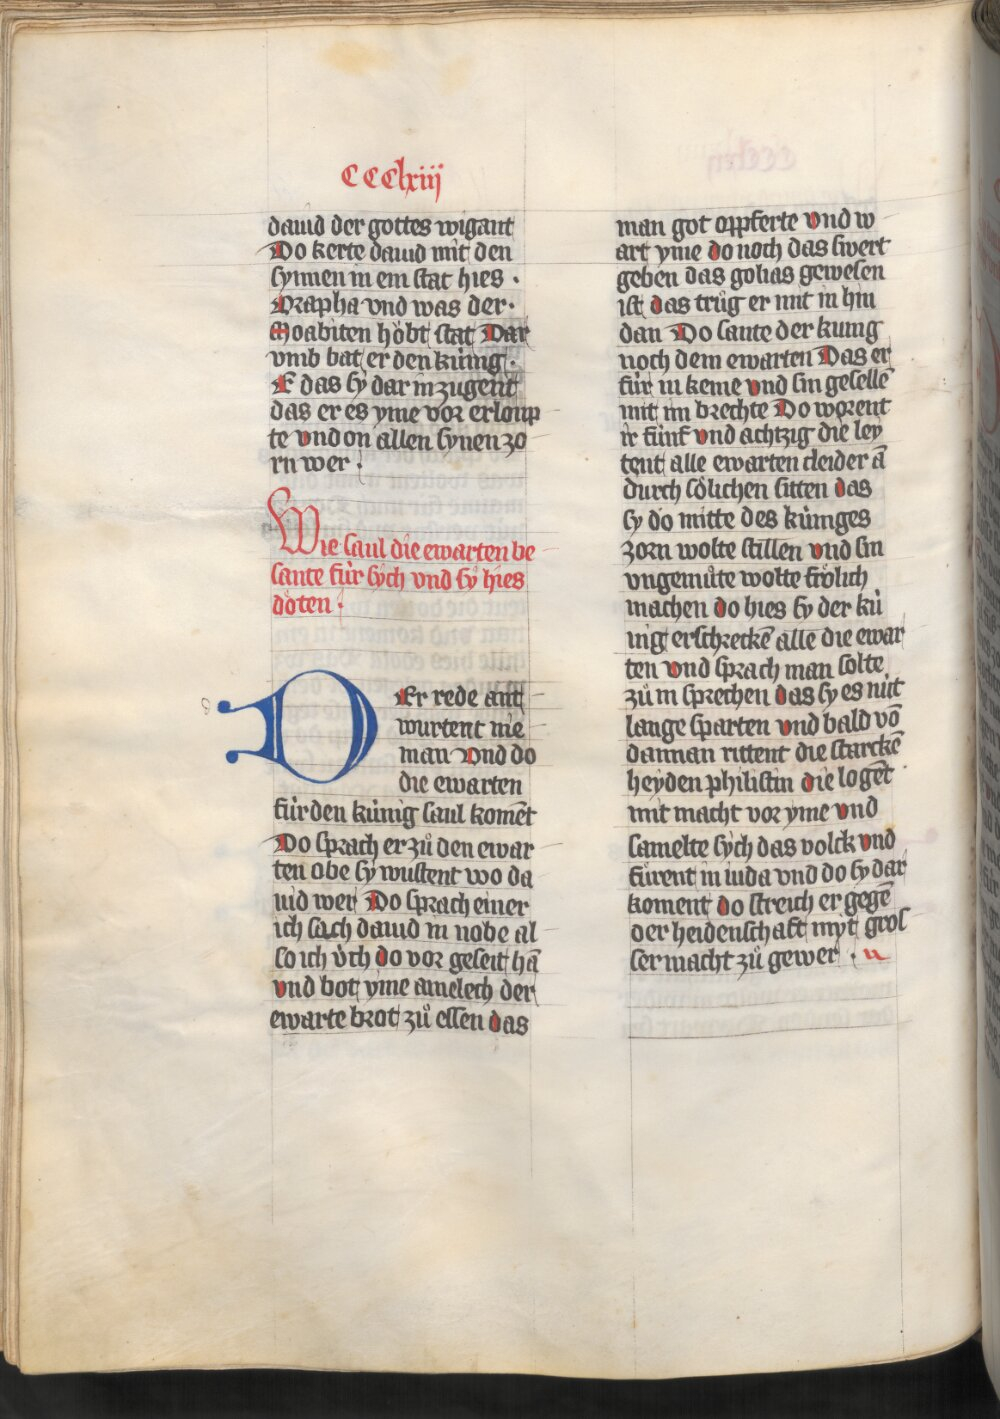 CCClxiij
dauid der gottes wigant
Do kerte dauid mit den
synnen in em stat hies ·
Arapha vnd was der ·
Moabiten höbt stat Dar
vmb bat er den künig ·
E das sy dar in zugent
das er es yme vor erloup
te vnd on allen synen zo
rn wer ·
Wie saul die ewarten be
sante für sych vnd sy hies
döten ·
DEr rede ant
wurtent nie
man Vnd do
die ewarten
für den künig saul komēt
Do sprach er zů den ewar
ten obe sy wustent wo da
uid wer Do sprach einer
ich sach dauid in nobe al
so ich v̈ch do vor geseit hā
vnd bot yme amelech der
ewarte brot zů essen das
man got oppferte vnd w
art yme do noch das swert
geben das golias gewesen
ist das trůg er mit in hin
dan Do sante der kunig
noch dem ewarten Das er
für in keme vnd sin gesellē
mit im brechte Do worent
ir fünf vnd achtzig die ley
tent alle ewarten cleider ā
durch sölichen sitten das
sy do mitte des küniges
zorn wolte stillen vnd sin
vngemůte wolte frölich
machen do hies sy der kü
nig erschreckē alle die ewar
ten vnd sprach man solte
zů in sprechen das sy es nüt
lange sparten vnd bald vō
dannan rittent die starckē
heyden philistin die logēt
mit macht vor yme vnd
samelte sych das volck vnd
fürent in iuda vnd do sy dar
koment do streich er gegē
der heidenschaft myt gros
ser macht zů gewer ·